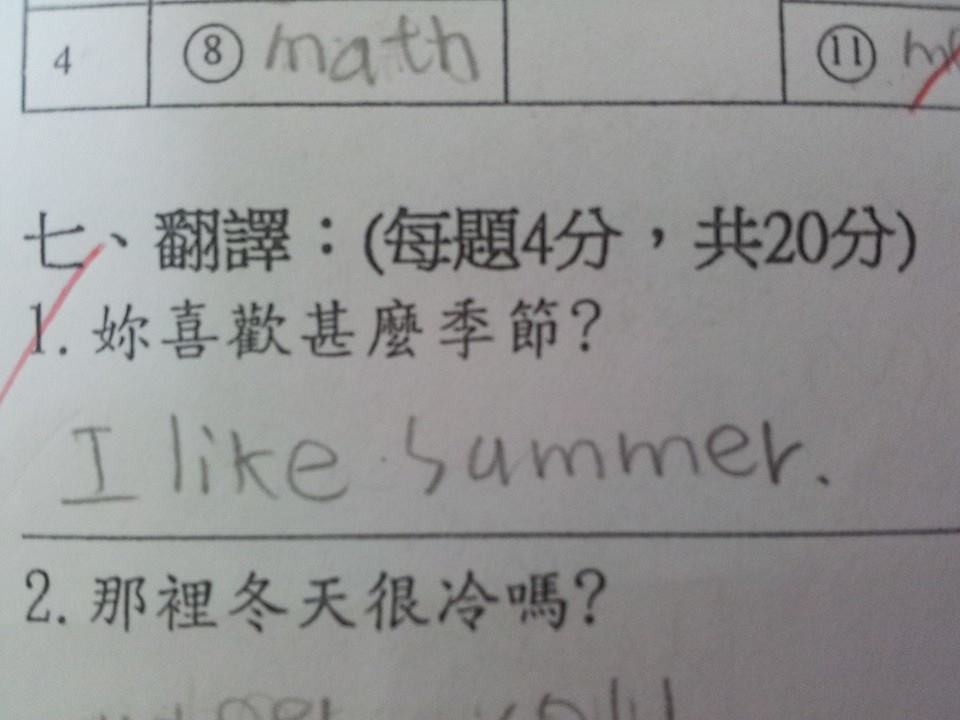 4 ⑧ math ⑪
七、翻譯：(每題4分，共20分)
1. 妳喜歡甚麼季節?
I like summer.
2. 那裡冬天很冷嗎?